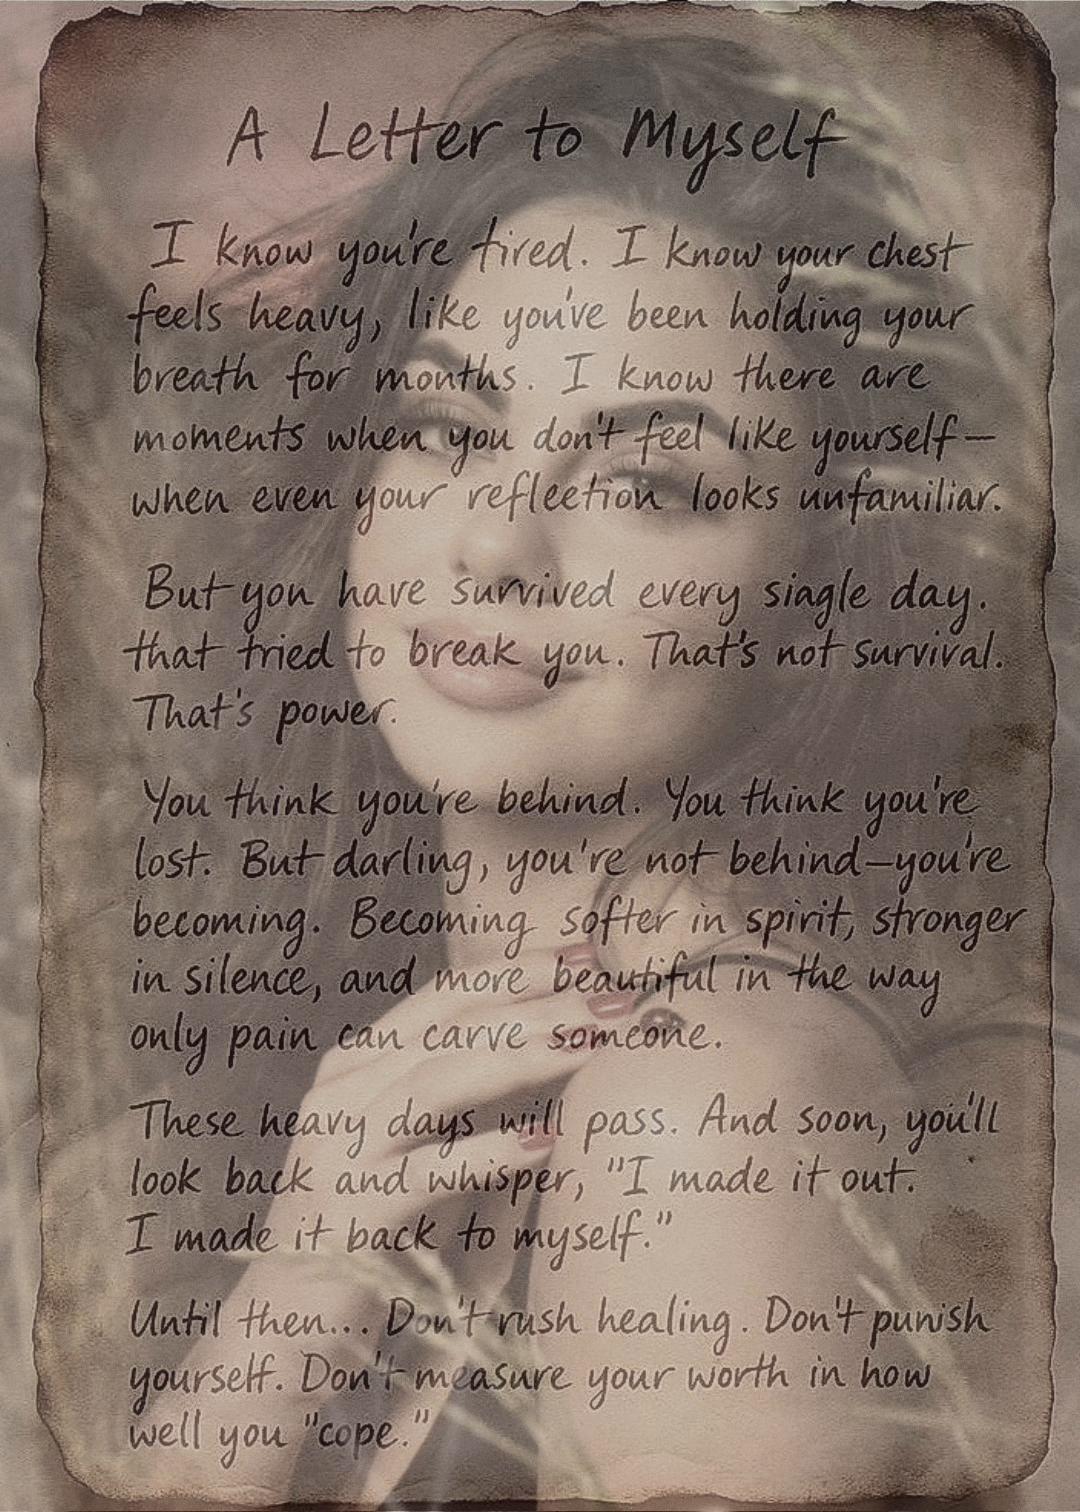 A Letter to Myself
I know you're tired. I know your chest
feels heavy, like you've been holding your
breath for months. I know there are
moments when you don't feel like yourself—
when even your refleetion looks unfamiliar.
But you have survived every siagle day.
that tried to break you. That's not survival.
That's power.
You think you're behind. You think you're
lost. But darling, you're not behind—you're
becoming. Becoming softer in spirit, stronger
in silence, and more beautiful in the way
only pain can carve someone.
These heavy days will pass. And soon, you'll
look back and whisper, "I made it out.
I made it back to myself."
Until then... Don't rush healing. Don't punish
yourself. Don't measure your worth in how
well you "cope."